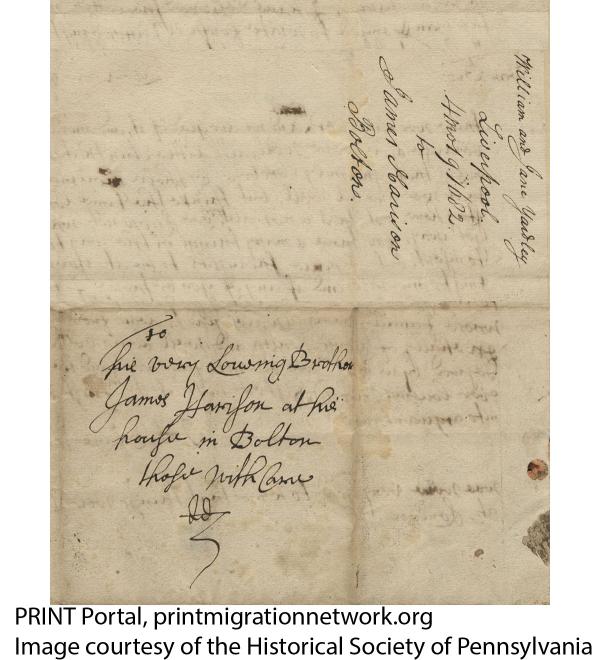 William and Jane Yardley
Liverpool.
4mo. 9 1682.
to
James Harison
Bolton.
To
his very Loueing Brother
James Harison at his
house in Bolton
these with Care
dd
PRINT Portal, printmigrationnetwork.org
Image courtesy of the Historical Society of Pennsylvania